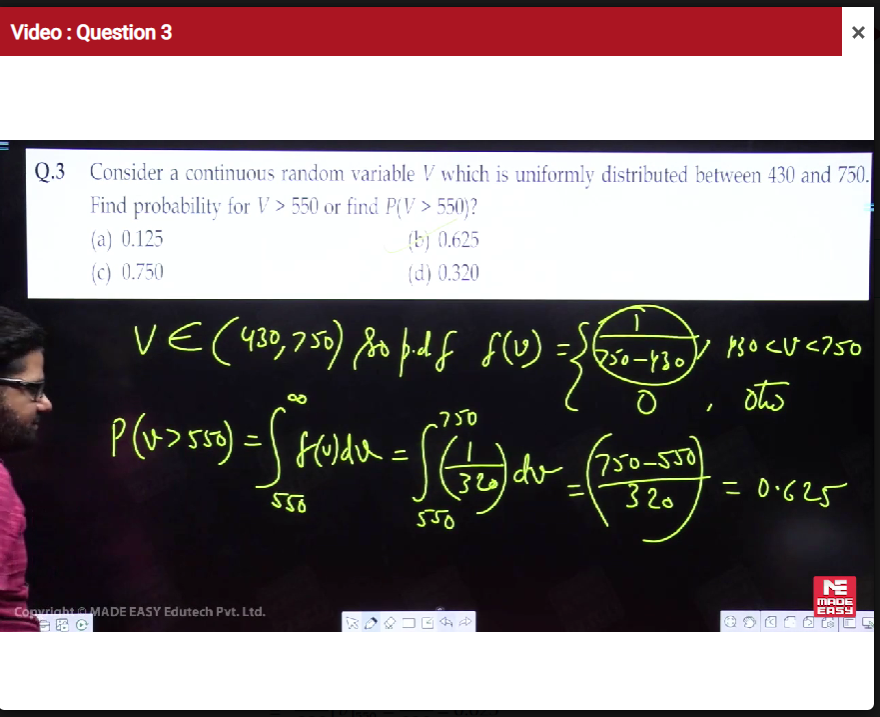 Video : Question 3
×
Q.3 Consider a continuous random variable V which is uniformly distributed between 430 and 750.
Find probability for V > 550 or find P(V > 550)?
(a) 0.125 (b) 0.625
(c) 0.750 (d) 0.320
V ∈ (430, 750) So p.d.f f(v) = { 1/(750-430), 430 < v < 750
0 , oth
P(v > 550) = ∫_550^∞ f(v)dv = ∫_550^750 (1/320) dv = (750-550)/320 = 0.625
Copyright © MADE EASY Edutech Pvt. Ltd.
MADE
EASY